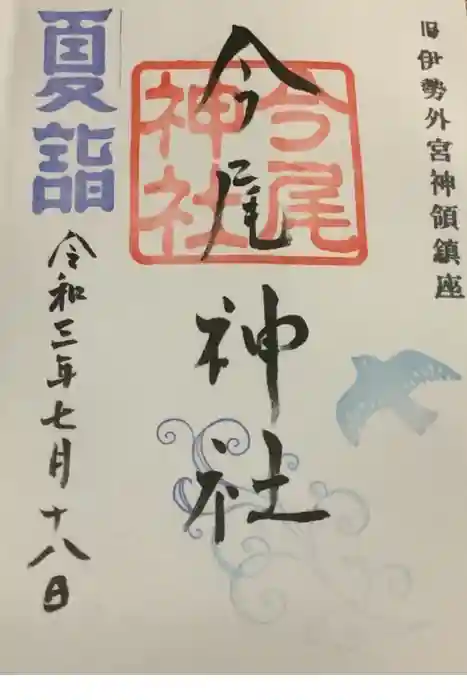 旧伊勢外宮神領鎮座
今尾神社
今尾
神社
夏詣
令和三年七月十八日